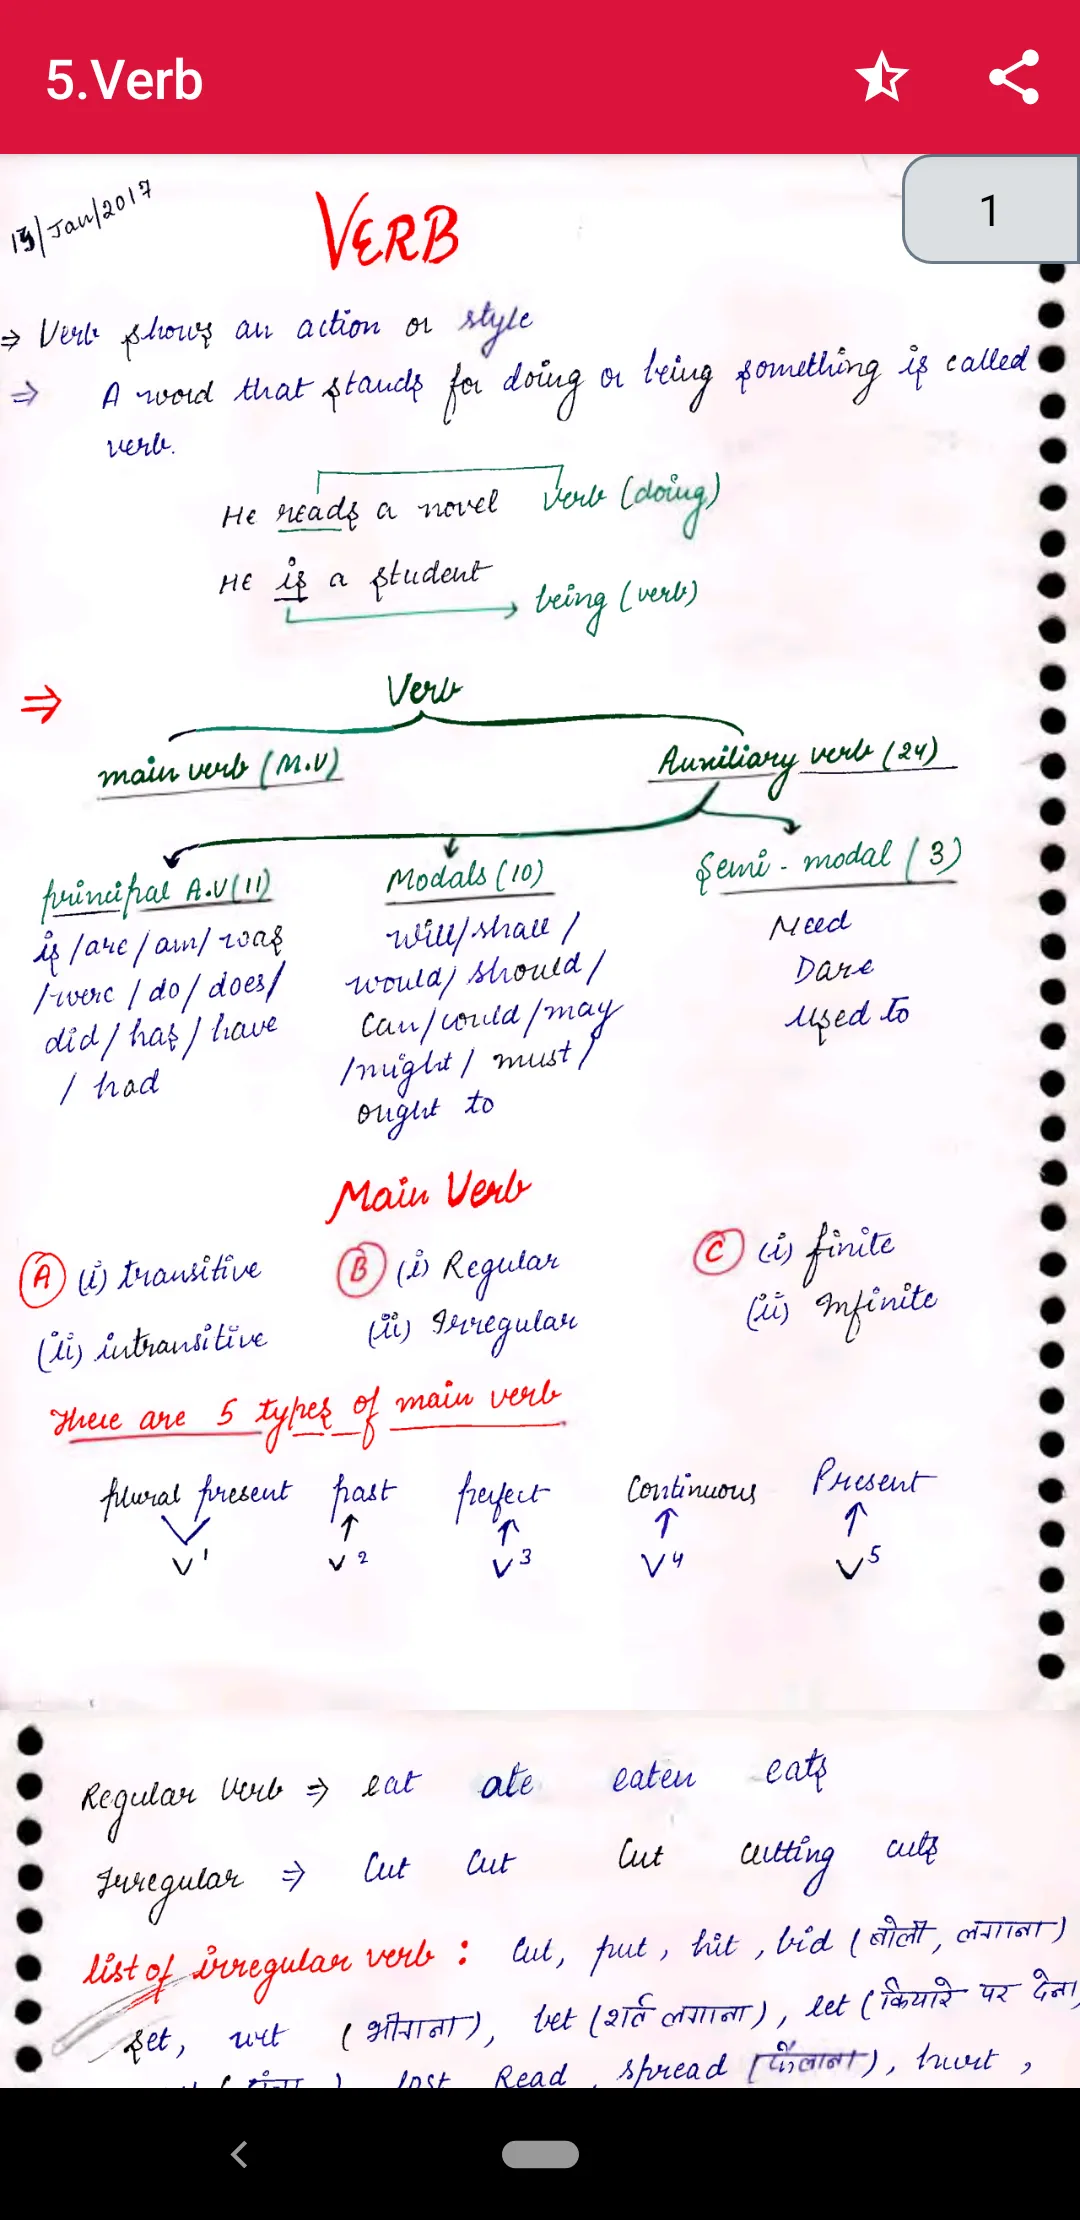 5.Verb
1
13/Jan/2017
VERB
⇒ Verb shows an action or style
⇒ A word that stands for doing or being something is called
verb.
He reads a novel verb (doing)
HE is a student
being (verb)
⇒ Verb
main verb (M.V) Auxiliary verb (24)
principal A.V (11) Modals (10) Semi-modal (3)
is /are / am/ was will/shall / Need
/were / do / does/ would/ should / Dare
did / has / have can/could /may used to
/ had /might / must /
ought to
Main Verb
A (i) transitive B (i) Regular C (i) finite
(ii) intransitive (ii) Irregular (ii) Infinite
There are 5 types of main verb
plural present past perfect Continuous Present
V1 V2 V3 V4 V5
Regular Verb ⇒ eat ate eaten eats
Irregular ⇒ Cut Cut Cut cutting cuts
list of irregular verb : Cut, put, hit, bid (बोली, लगाना)
set, wet (भीगाना), bet (शर्त लगाना), let (कियारे पर देना,
Read, spread (फैलाना), hurt,